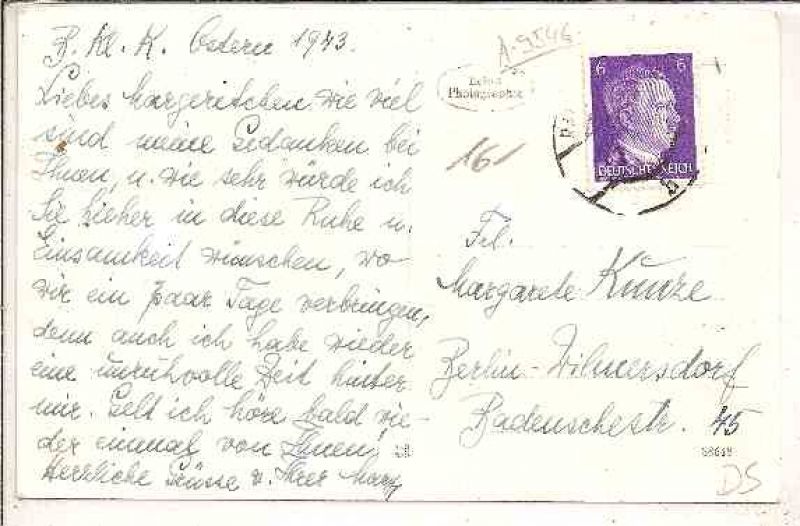 B. Kl. K. Ostern 1943.
Liebes Margeritchen wie viel
sind meine Gedanken bei
Ihnen, u. wie sehr würde ich
Sie hieher in diese Ruhe u.
Einsamkeit wünschen, wo
wir ein paar Tage verbringen,
denn auch ich habe wieder
eine unruhvolle Zeit hinter
mir. Gelt ich höre bald wie-
der einmal von Ihnen!
Herzliche Grüsse v. Ihrer
A-9546
Photographie
6 6
DEUTSCHES REICH
161
Frl.
Margarete Kunze
Berlin-Wilmersdorf
Badenschestr. 45
DS